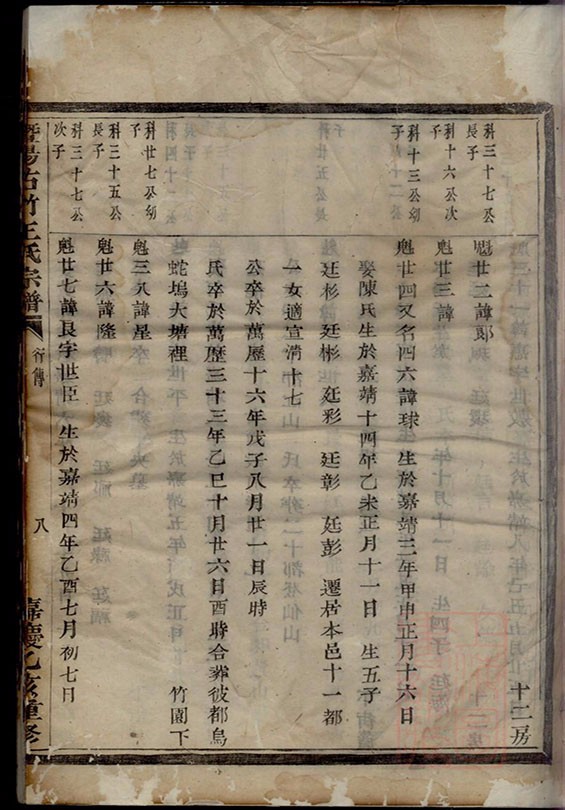 十二房
科三十七公
長子
魁廿二諱鄭
科十六公次
子
魁廿三諱
科十三公幼
子
魁廿四又名四六諱球 生於嘉靖三年甲申正月十六日
娶陳氏生於嘉靖十四年乙未正月十一日 生五子
廷杉 廷彬 廷彩 廷彰 廷彭 遷居本邑十一都
一女適宣清十七
公卒於萬歷十六年戊子八月廿一日辰時
氏卒於萬歷三十三年乙巳十月廿六日酉時合葬彼都鳥
蛇塢大塘裡 竹園下
科廿七公幼
子
魁三八諱星
科三十五公
長子
魁廿六諱隆
科三十七公
次子
魁廿七諱良字世臣 生於嘉靖四年乙酉七月初七日
暨陽古竹王氏宗譜
行傳
八
嘉慶乙亥重修